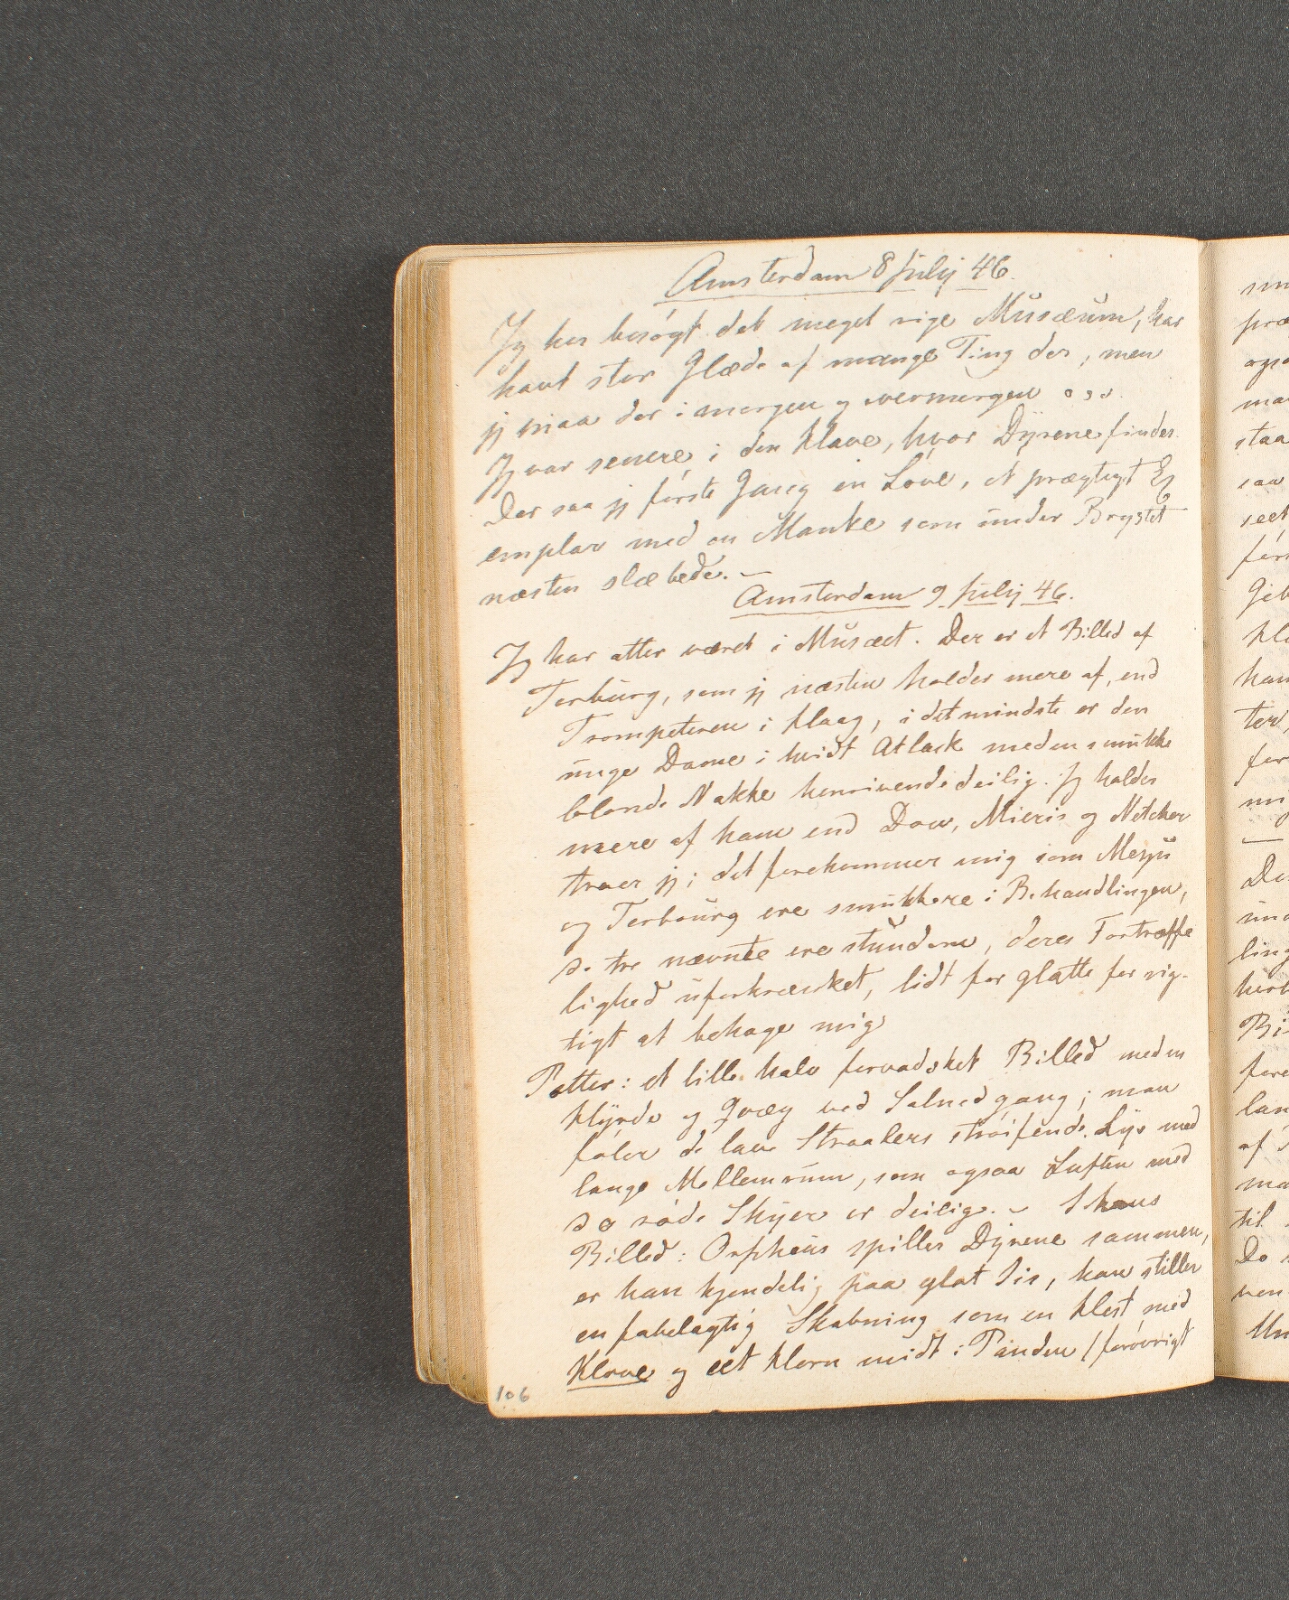 Amsterdam 8 July 46.
Jeg har besøgt det meget rige Musæum, har
havt stor Glæde af mange Ting der, men
jeg maa der i morgen og overmorgen
Jeg var senere i den Have, hvor Dyrene findes.
Der saa jeg første Gang en Løve, et prægtigt Ex
emplar med en Manke som under Brystet
næsten slæbede. –
Amsterdam 9 July 46.
Jeg har atter været i Musæet. Der er et Billed af
Terburg, som jeg næsten holder mere af, end
Trompeteren i Haag, i det mindste er den
unge Dame i hvidt Atlask med en smukke
blonde Nakke henrivende deilig. Jeg holder
mere af ham end Dow, Mieris og Netcher
troer jeg; det forekommer mig som Mezju
og Terbourg ere smukkere i Behandlingen,
de tre nævnte ere stundom, deres Fortræffe
lighed uforkrænket, lidt for glatte for rig-
tigt at behage mig
Potter: et lille halv forvadsket Billed med en
Hyrde og Qvæg ved Solnedgang; man
føler de lave Straalers strøifende Lys med
lange Mellemrum, som ogsaa Luften med
de røde Skyer er deilig. – I hans
Billed: Orpheus spiller Dyrene sammen,
er han kjendelig paa glat Iis, han stiller
en fabelagtig Skabning som en Hest med
Klove og eet Horn midt i Panden / forøvrigt
106